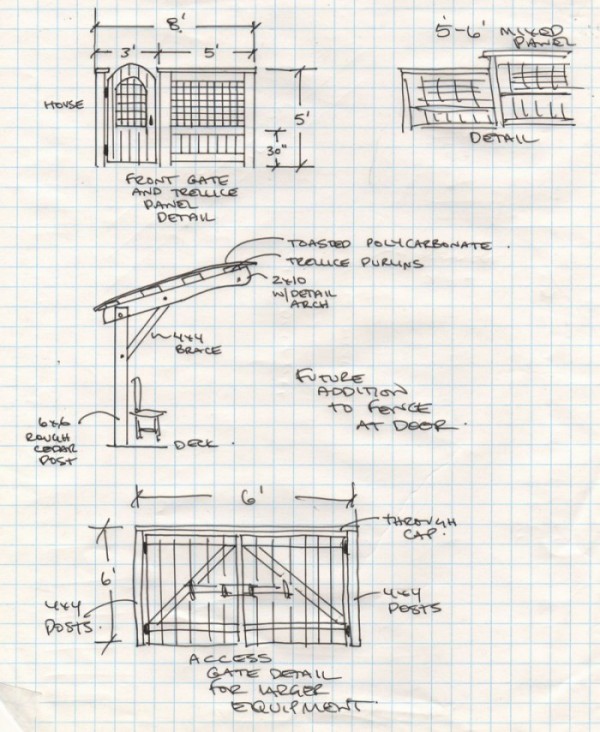 8'
3'
5'
HOUSE
5'
30"
FRONT GATE
AND TRELLICE
PANEL
DETAIL
5'-6' MIXED
PANEL
DETAIL
TOASTED POLYCARBONATE.
TRELLICE PURLINS
2x10
W/DETAIL
ARCH
4x4
BRACE
6x6
ROUGH
CEDAR
POST
DECK.
FUTURE
ADDITION
TO FENCE
AT DOOR.
6'
THROUGH
CAP.
6'
4x4
POSTS.
4x4
POSTS
ACCESS
GATE DETAIL
FOR LARGER
EQUIPMENT.